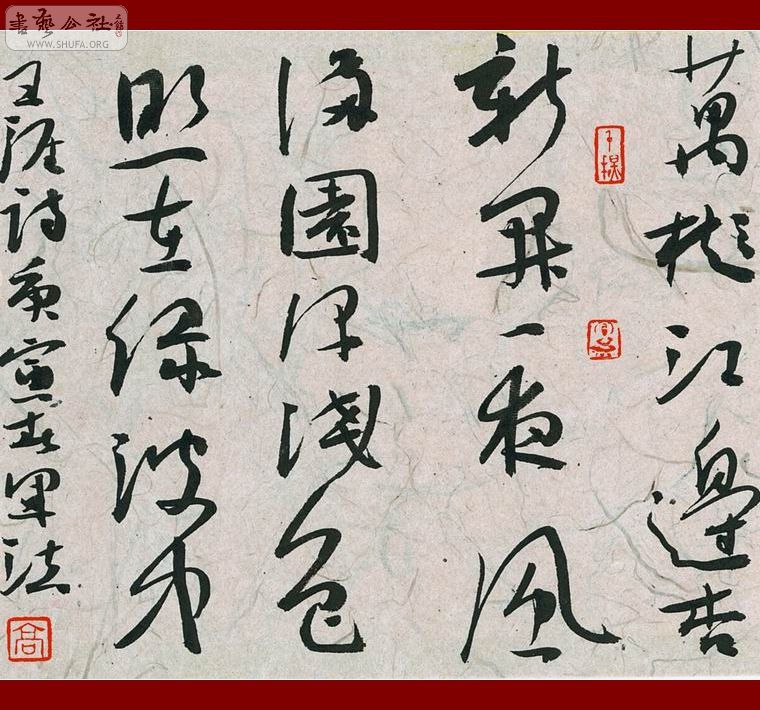 書藝公社
WWW.SHUFA.ORG
萬樹江邊杏
新開一夜風
滿園深淺色
照在綠波中
王涯詩庚寅春軍法
高